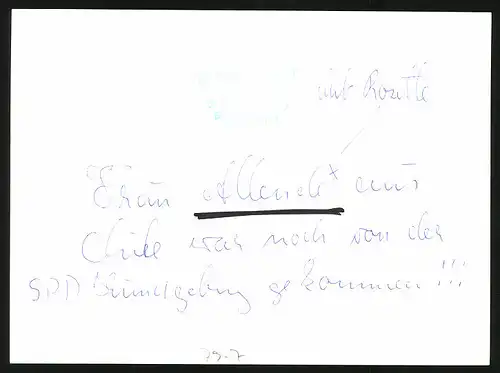 mit Rosette
Frau Allende* aus
Chile war noch von der
SPD Kundgebung gekommen!!!
79-7